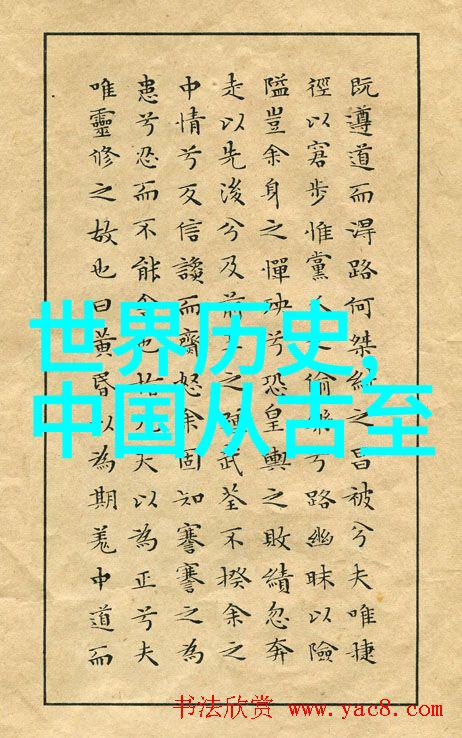 既遵道而淂路何桀紂之昌被兮夫唯捷
徑以窘步惟黨人偷樂兮路幽昧以險
隘豈余身之憚殃兮恐皇輿之敗績忽奔
走以先後兮及前之踵武荃不揆余之
中情兮反信讒而齌怒余固知謇謇之為
患兮忍而不能也指夫以為正兮夫
唯靈修之故也曰黃昏以為期羌中道而
世界历史，
中国从古至
书法欣赏 www.yac8.com